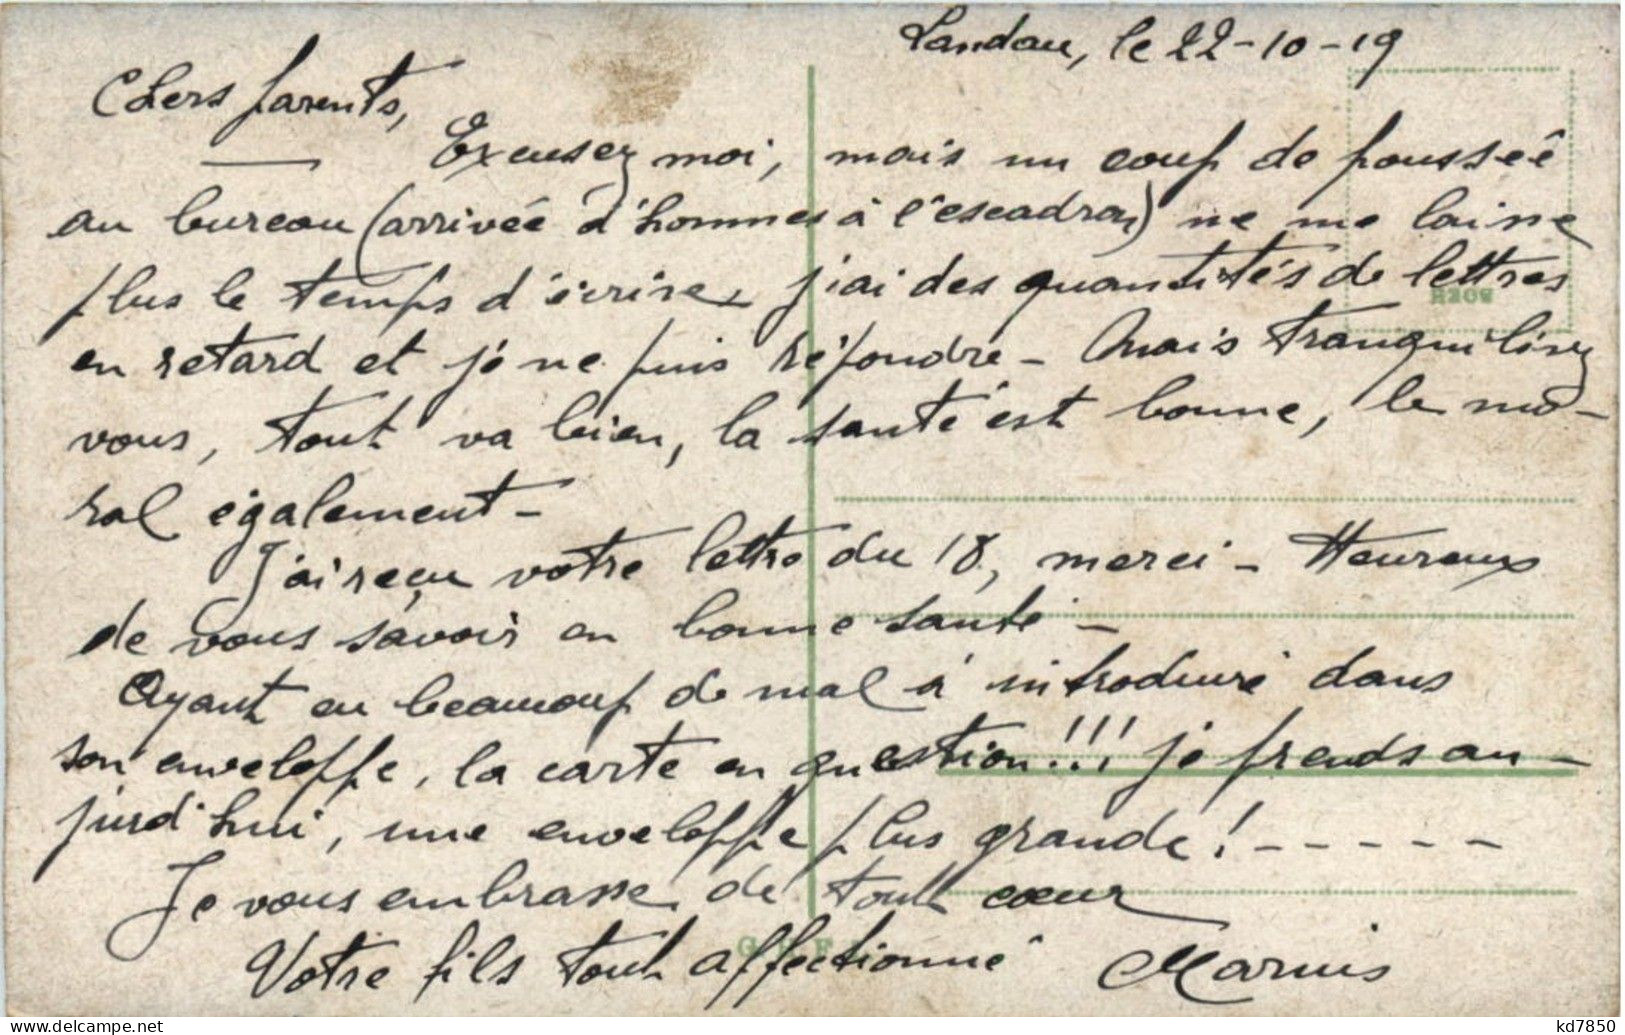 Landau, le 22-10-19
Chers parents,
Excusez moi, mais un coup de pousseé
au bureau (arrivée d'hommes à l'escadron) ne me laisse
plus le temps d'écrire, j'ai des quantités de lettres
en retard et je ne puis répondre - Mais tranquilisez
vous, tout va bien, la santé est bonne, le mo-
ral également -
J'ai reçu votre lettre du 18, merci - Heureux
de vous savoir en bonne santé -
Ayant eu beaucoup de mal à introduire dans
son enveloppe, la carte en question!!! je prends au-
jurd'hui, une enveloppe plus grande! - - - - -
Je vous embrasse de tout cœur
Votre fils tout affectionné Marius
kd7850